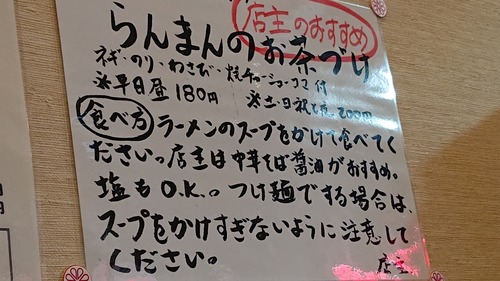 店主のおすすめ
らんまんのお茶づけ
ネギ・のり・わさび・炙チャーシュー・ゴマ 付
※平日昼180円 ※土・日・祝と夜200円
食べ方 ラーメンのスープをかけて食べてく
ださいっ店主は中華そば醤油がおすすめ。
塩もO.K.。つけ麺でする場合は、
スープをかけすぎないように注意して
ください。 店主
円